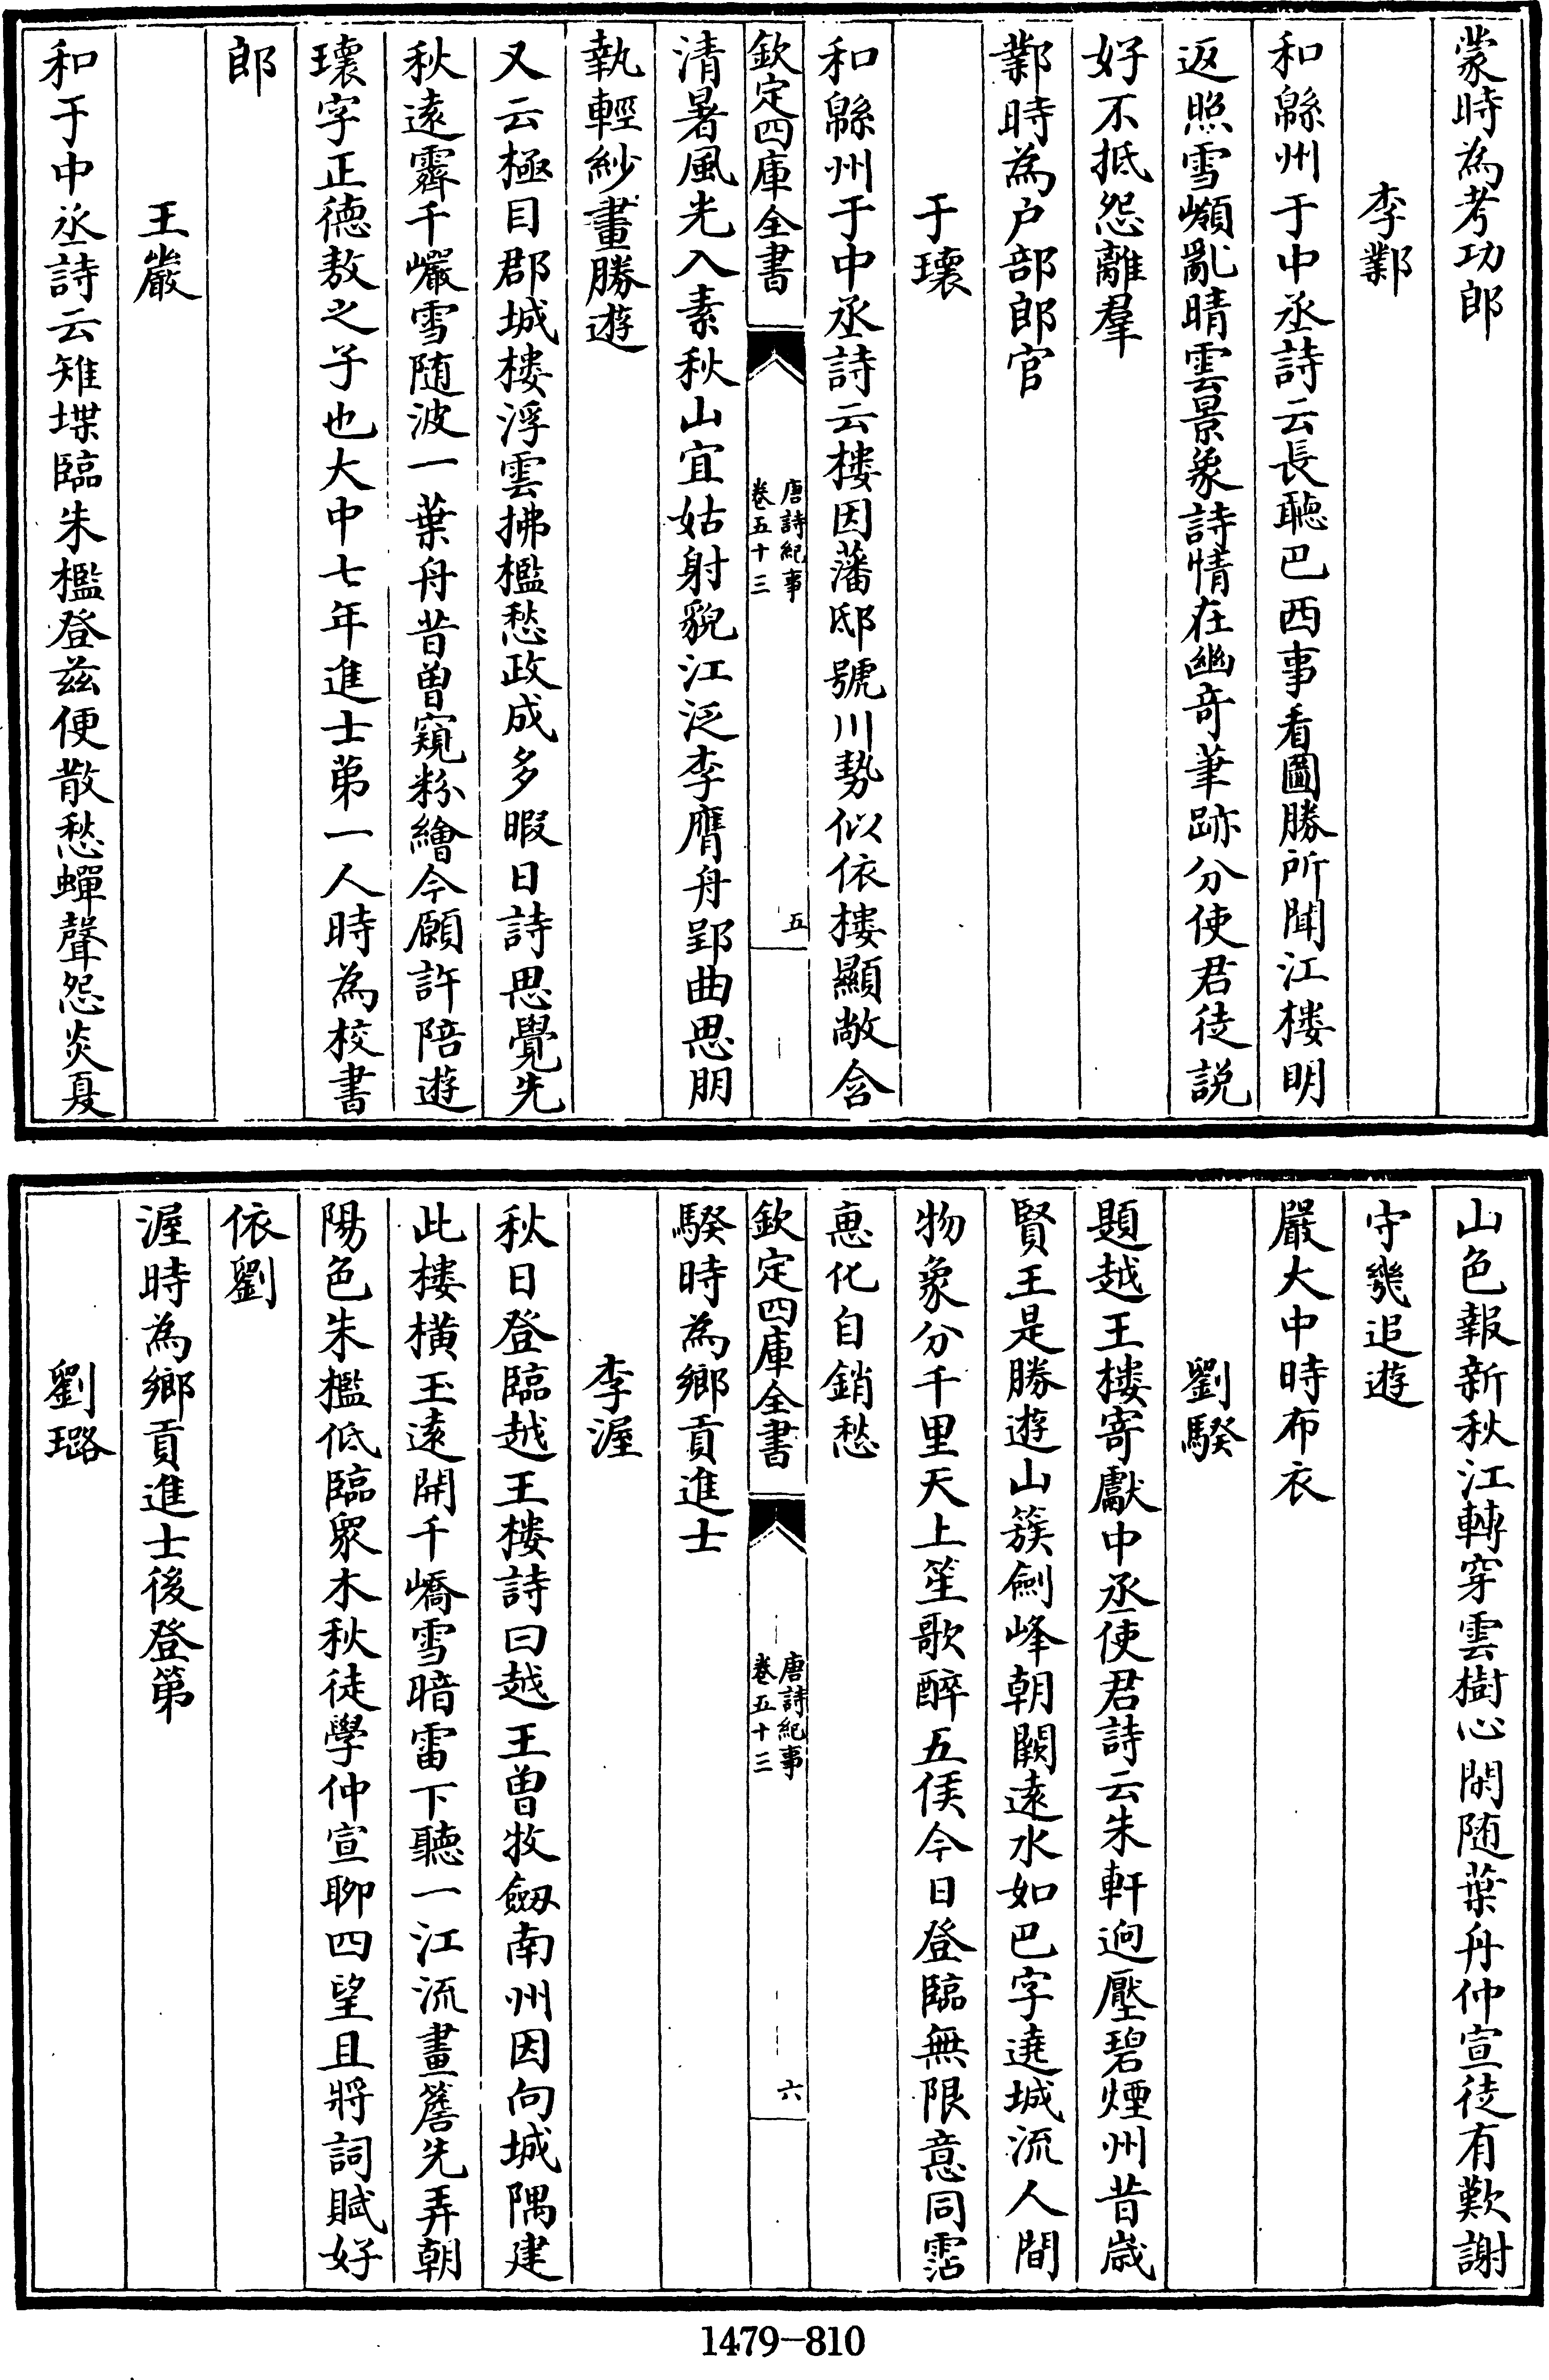 蒙時為考功郎
李鄴
和緜州于中丞詩云長聽巴西事看圖勝所聞江樓明
返照雪嶺亂晴雲景象詩情在幽奇筆跡分使君徒説
好不抵怨離羣
鄴時為户部郎官
于瓌
和緜州于中丞詩云樓因藩邸號川勢似依樓顯敞含
欽定四庫全書
唐詩紀事
卷五十三
五
清暑風光入素秋山宜姑射貌江泛李膺舟郢曲思朋
執輕紗畫勝遊
又云極目郡城樓浮雲拂檻愁政成多暇日詩思覺先
秋遠霽千巖雪随波一葉舟昔曽窺粉繪今願許陪遊
瓌字正德敖之子也大中七年進士第一人時為校書
郎
王巖
和于中丞詩云雉堞臨朱檻登兹便散愁蟬聲怨炎夏
山色報新秋江轉穿雲樹心閒随葉舟仲宣徒有歎謝
守幾追遊
嚴大中時布衣
劉騤
題越王樓寄獻中丞使君詩云朱軒逈壓碧煙州昔歳
賢王是勝遊山簇劍峰朝闕遠水如巴字遶城流人間
物象分千里天上笙歌醉五侯今日登臨無限意同霑
惠化自銷愁
欽定四庫全書
唐詩紀事
卷五十三
六
騤時為鄉貢進士
李渥
秋日登臨越王樓詩曰越王曽牧劒南州因向城隅建
此樓横玉遠開千嶠雪暗雷下聽一江流畫簷先弄朝
陽色朱檻低臨衆木秋徒學仲宣聊四望且將詞賦好
依劉
渥時為鄉貢進士後登第
劉璐
1479-810